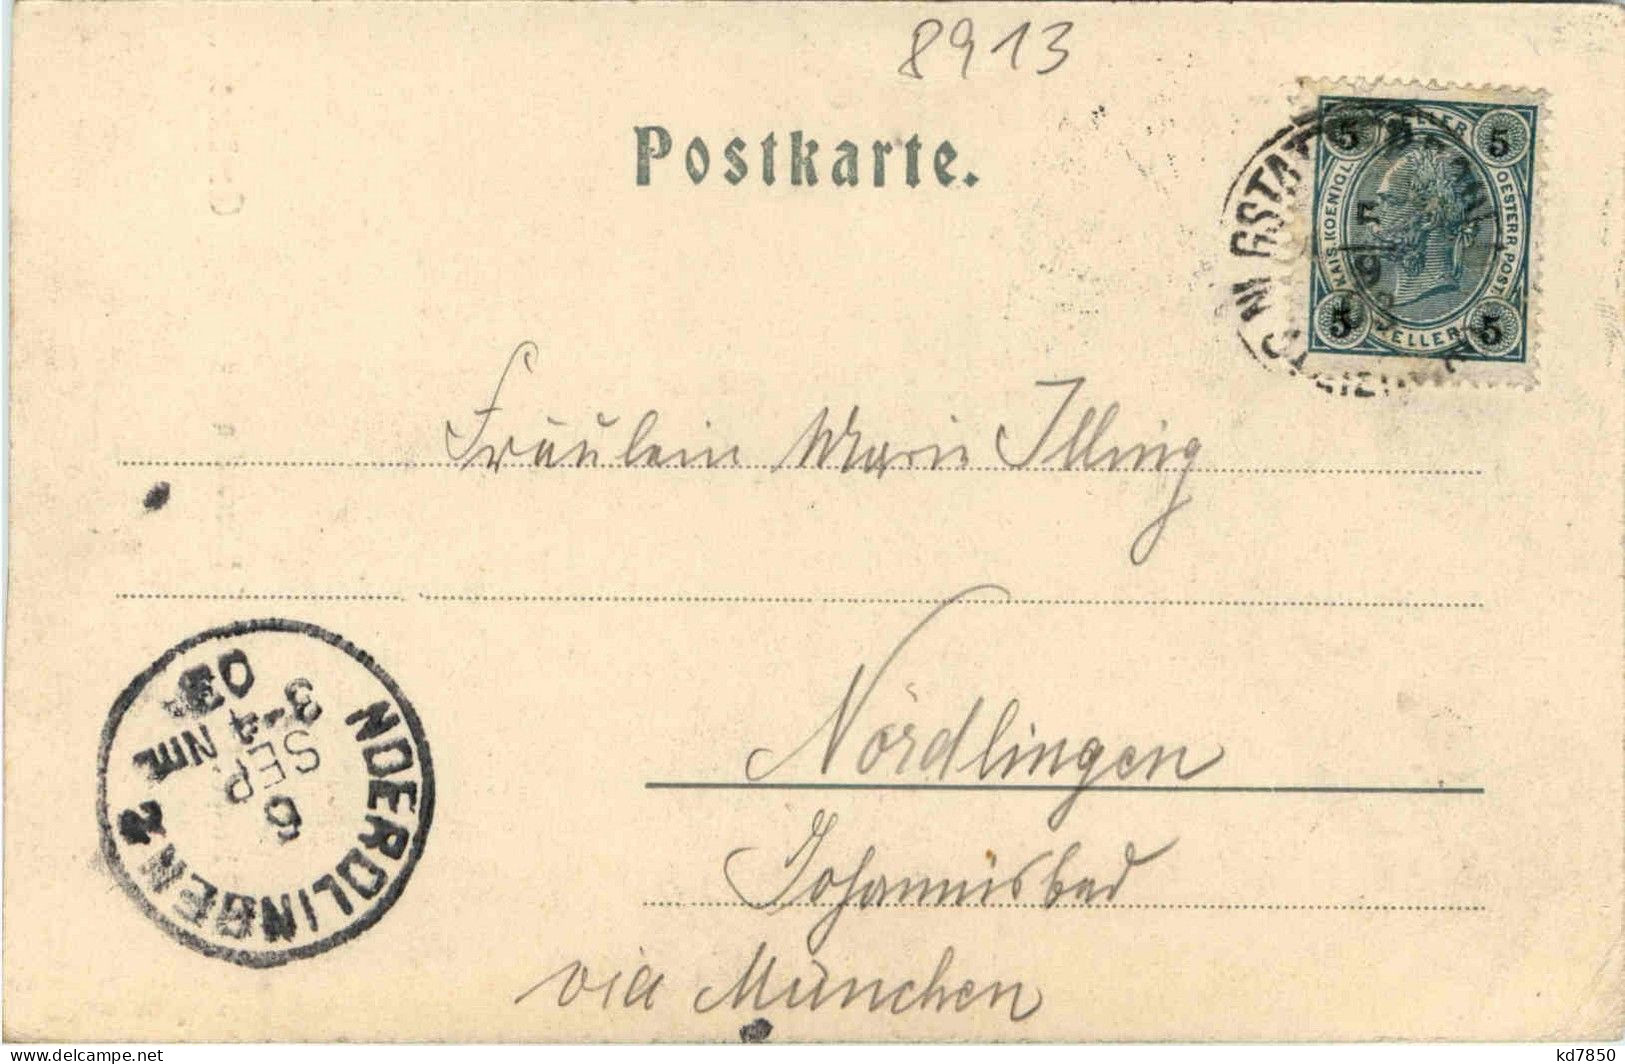 8913
Postkarte.
5 HELLER 5
KAIS. KOENIGL. OESTERR. POST.
5 HELLER 5
Fräulein Marie Illing
Nördlingen
Johannisbad
via München
NOERDLINGEN 2
NM
6
SEP
03
www.delcampe.net
kd7850